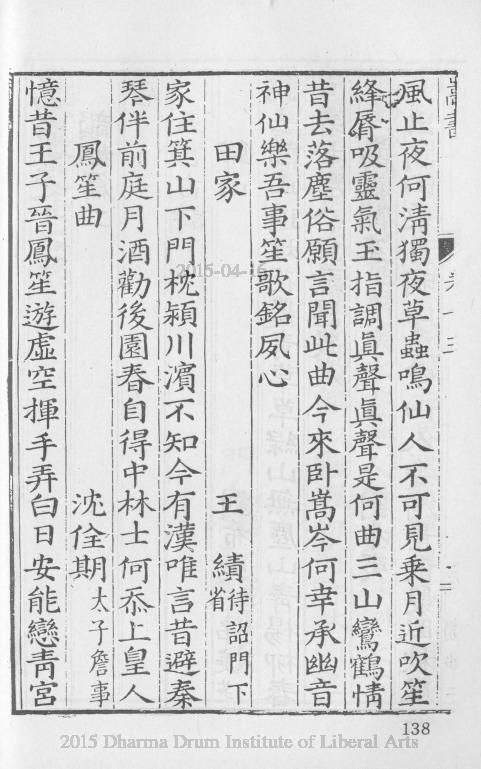 嵩書
卷十三
風止夜何淸獨夜草蟲鳴仙人不可見乗月近吹笙
絳脣吸靈氣玉指調眞聲眞聲是何曲三山鸞鶴情
昔去落塵俗願言聞此曲今來卧嵩岑何幸承幽音
神仙樂吾事笙歌銘夙心
田家 王績待詔門下省
家住箕山下門枕潁川濱不知今有漢唯言昔避秦
琴伴前庭月酒勸後園春自得中林士何忝上皇人
鳳笙曲 沈佺期太子詹事
憶昔王子晉鳳笙遊虛空揮手弄白日安能戀靑宮
138
2015-04-16
2015 Dharma Drum Institute of Liberal Arts